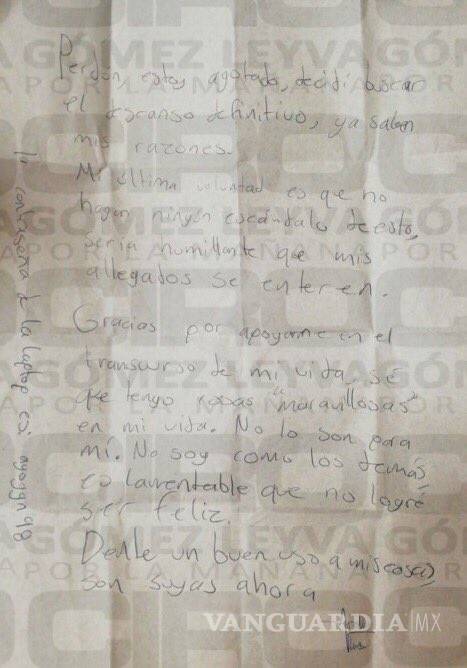 Perdón, estoy agotado, decidí buscar
el descanso definitivo, ya saben
mis razones.
Mi última voluntad es que no
hagan ningún escándalo de esto,
sería humillante que mis
allegados se enteren.
Gracias por apoyarme en el
transcurso de mi vida, sé
que tengo cosas "maravillosas"
en mi vida. No lo son para
mí. No soy como los demás,
es lamentable que no logré
ser feliz.
Denle un buen uso a mis cosas,
son suyas ahora
la contraseña de la laptop es:
GÓMEZ LEYVA
POR LA MAÑANA
CIRO
VANGUARDIA MX